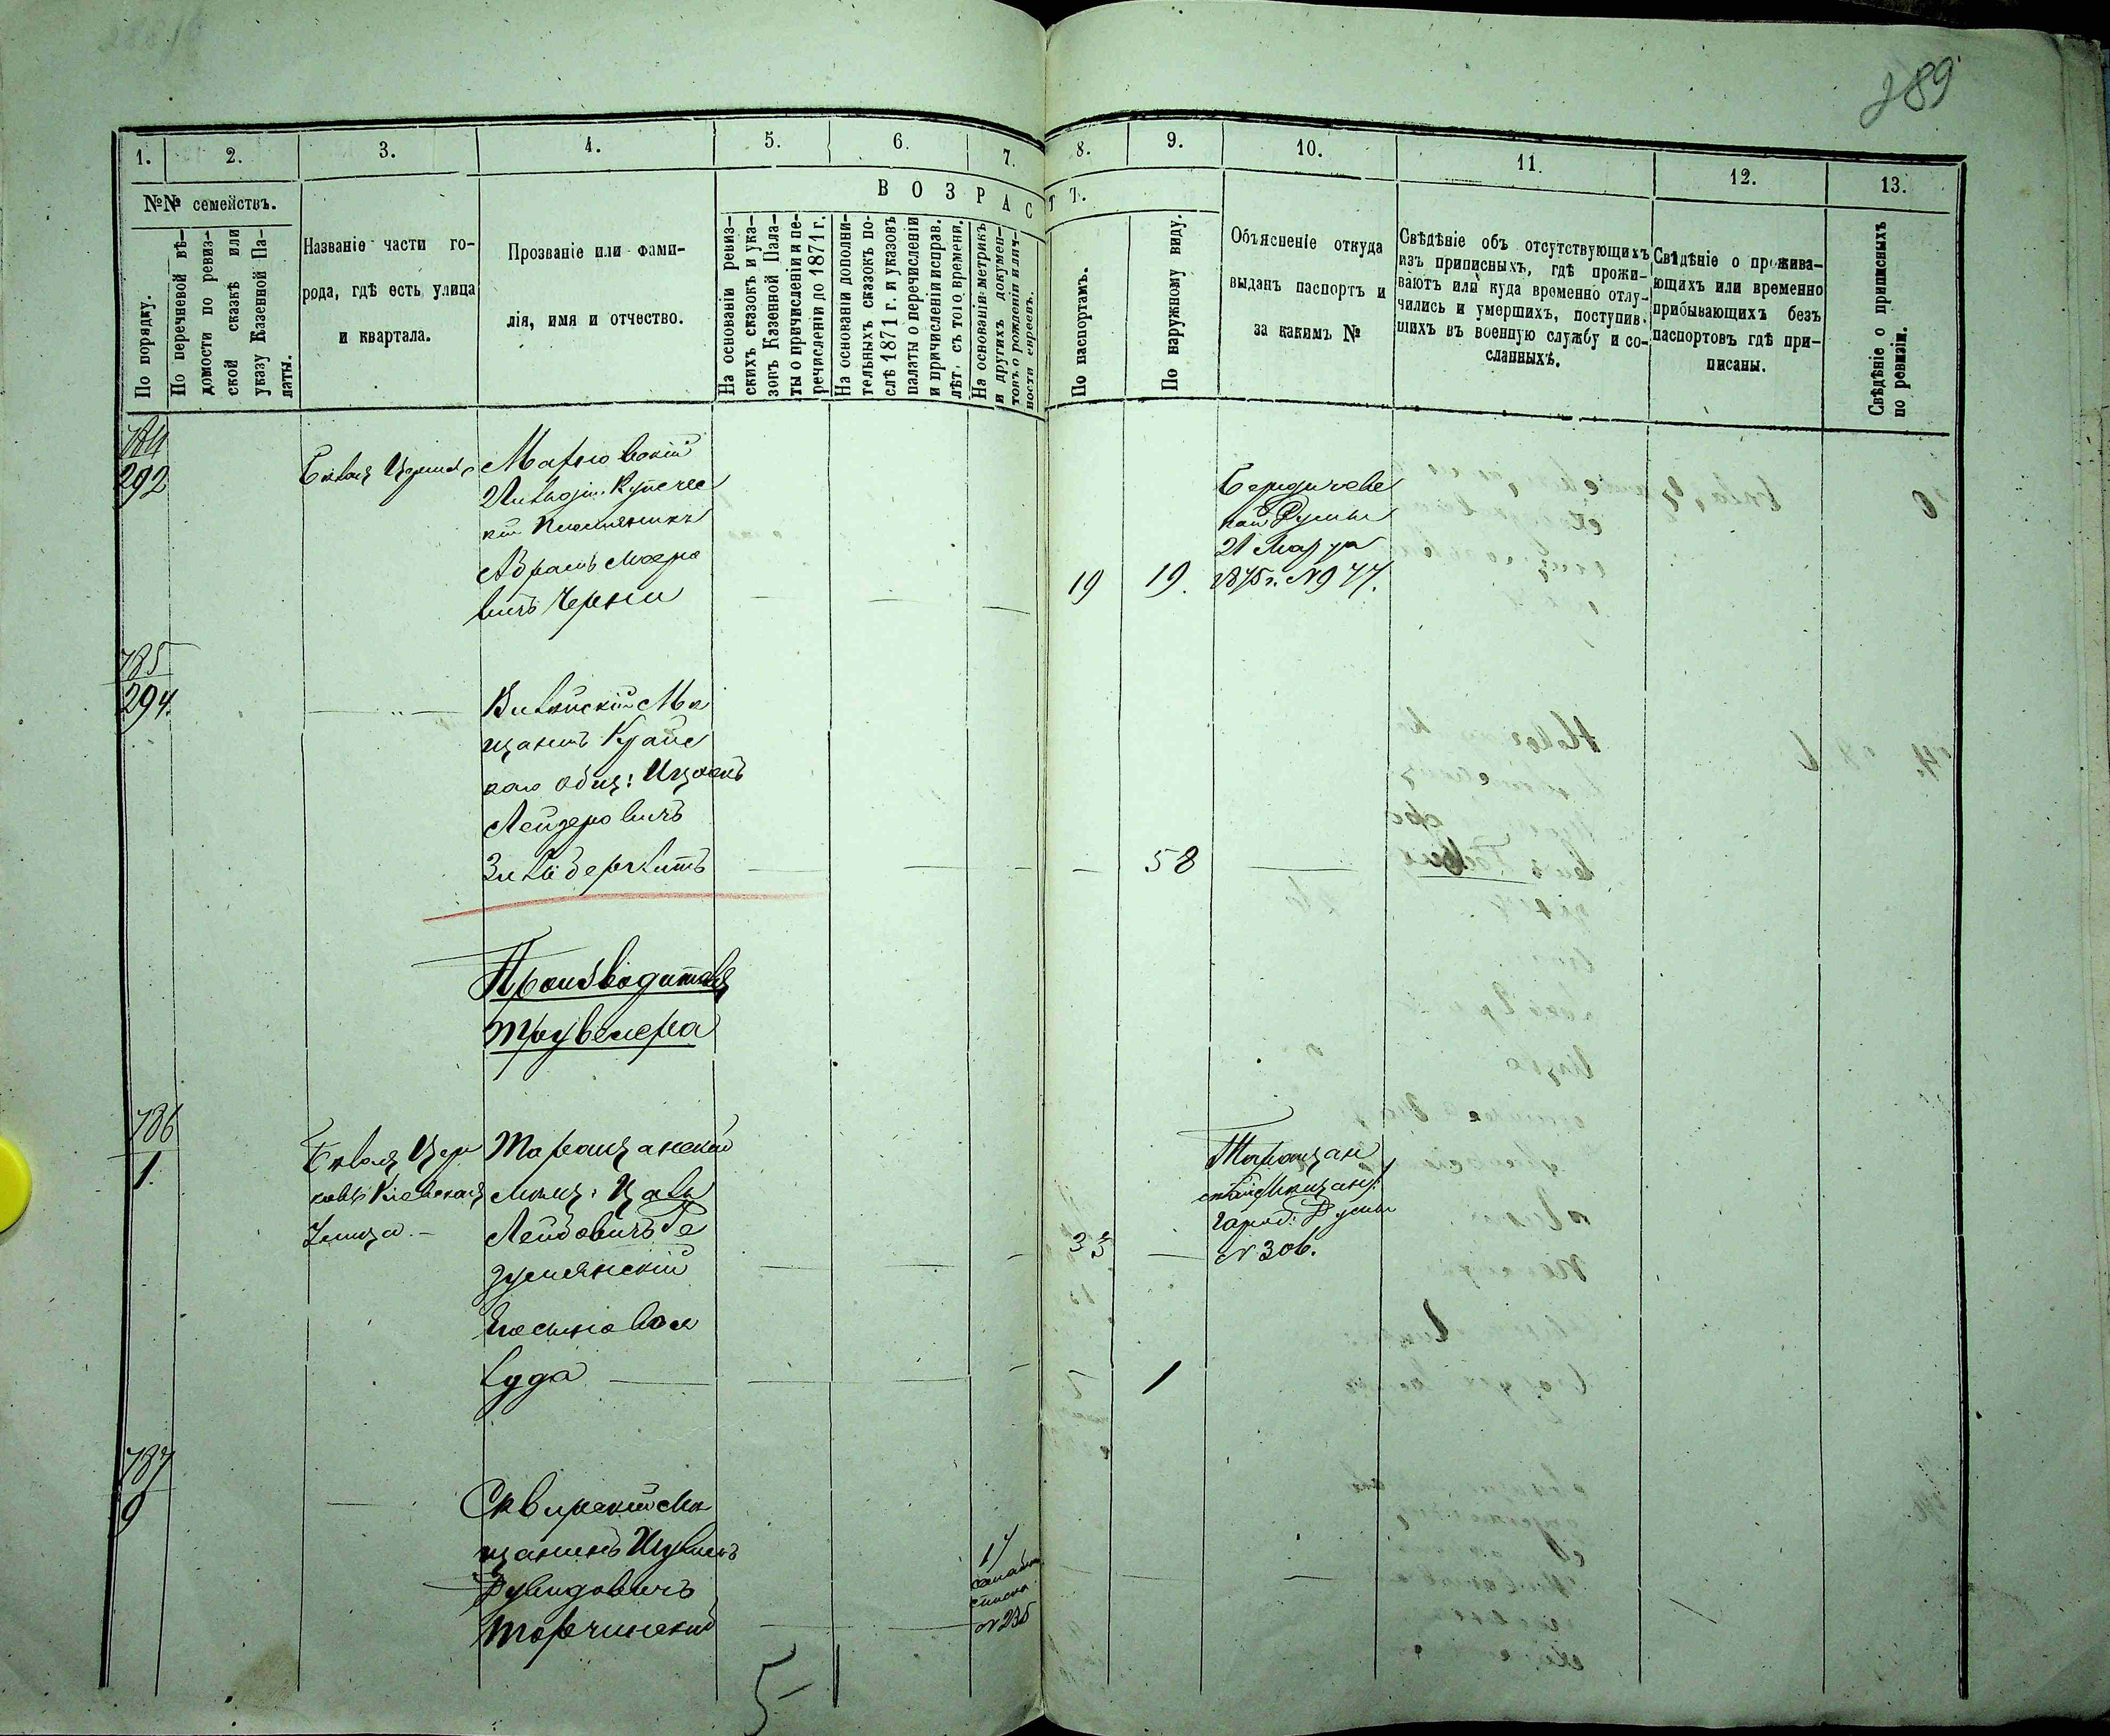 289
1. 2. 3. 4. 5. 6. 7. 8. 9. 10. 11. 12. 13.
№№ семействъ.
В О З Р А С Т Ъ.
По порядку.
По перечневой вѣ-
домости по ревиз-
ской сказкѣ или
указу Казенной Па-
латы.
Названіе части го-
рода, гдѣ есть улица
и квартала.
Прозваніе или фами-
лія, имя и отчество.
На основаніи ревиз-
скихъ сказокъ и ука-
зовъ Казенной Пала-
ты о причисленіи и пе-
речисленіи до 1871 г.
На основаніи дополни-
тельныхъ сказокъ по-
слѣ 1871 г. и указовъ
палаты о перечисленіи
и причисленіи исправ.
лѣт. съ того времени.
На основаніи метрикъ
и другихъ докумен-
товъ о рожденіи и лич-
ности евреевъ.
По паспортамъ.
По наружному виду.
Объясненіе откуда
выданъ паспортъ и
за какимъ №
Свѣдѣніе объ отсутствующихъ
изъ приписныхъ, гдѣ прожи-
ваютъ или куда временно отлу-
чились и умершихъ, поступив-
шихъ въ военную службу и со-
сланныхъ.
Свѣдѣніе о прожива-
ющихъ или временно
прибывающихъ безъ
паспортовъ гдѣ при-
писаны.
Свѣдѣніе о приписныхъ
по ревизіи.
784
292
Бѣлая Церковь
Махновскій
Купечес
кій племянникъ
Абрамъ Мееро
вичъ Черни
19 19.
Бердичевс
кой Думы
21 Марта
1875 г. № 977.
785
294.
— „ —
Мѣ
щанинъ
каго общ: Ицкокъ
Лейзеровичъ
Зильберквитъ
58
Производителя
786
1.
Бѣлая Цер
ковь Кіевская
Улица. —
Таращанскій
мѣщ:
Лейбовичъ Ре
зумянскій
Іуда
33
1
Таращан
ской Мѣщан:
город: Думы
№ 306.
787
9
Сквирскій Мѣ
щанинъ
Дувидовичъ
Торчинскій
17
семейн
списка
№ 235
5